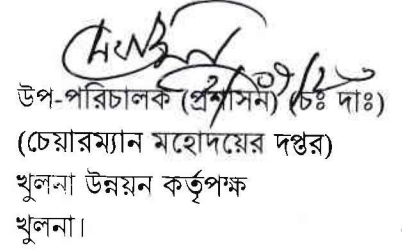 উপ-পরিচালক (প্রশাসন) (চঃ দাঃ)
(চেয়ারম্যান মহোদয়ের দপ্তর)
খুলনা উন্নয়ন কর্তৃপক্ষ
খুলনা।